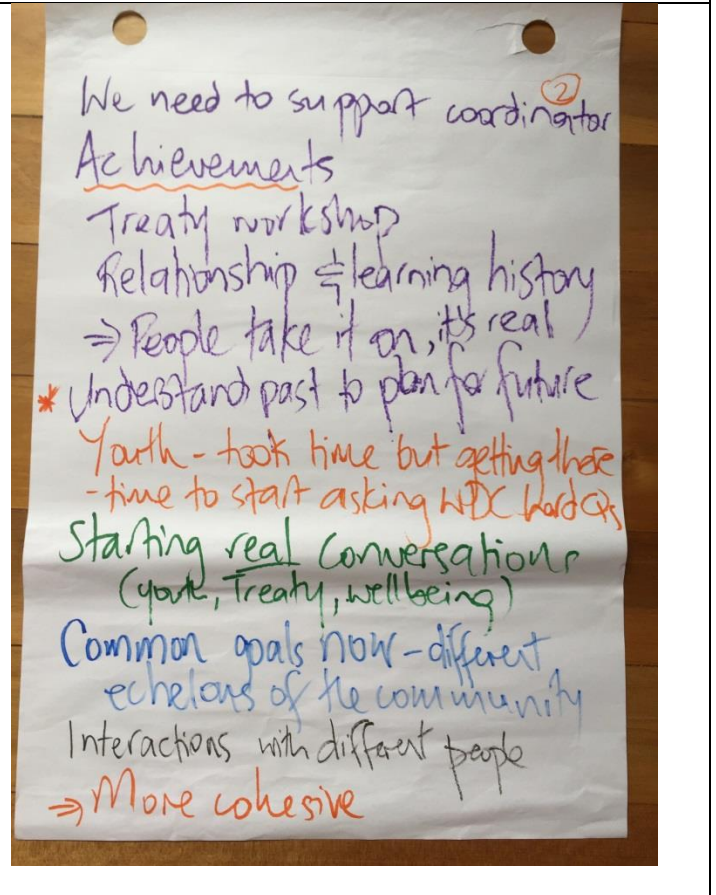 ②
We need to support coordinator
Achievements
Treaty workshop
Relationship & learning history
⇒ People take it on, it's real
* Understand past to plan for future
Youth - took time but getting there
- time to start asking WDC hard Qs
Starting real conversations
(youth, Treaty, wellbeing)
Common goals now - different
echelons of the community
Interactions with different people
⇒ More cohesive